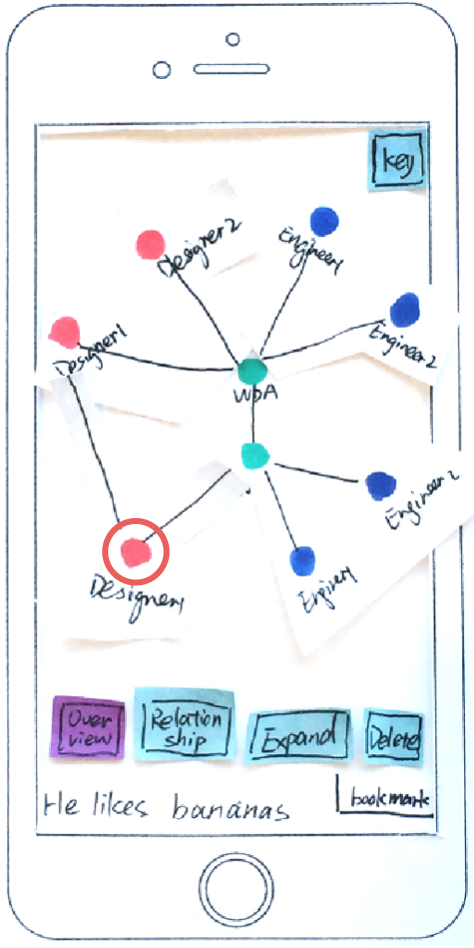 key
Designer2
Engineer1
Designer1
Engineer2
WDA
Engineer2
Designer1
Enginer1
Over
view
Relation
ship
Expand
Delete
bookmark
He likes bananas